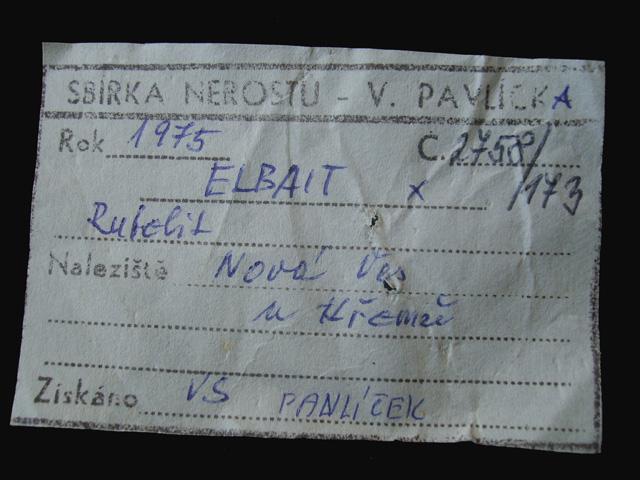 SBÍRKA NEROSTU - V. PAVLÍČKA
Rok 1975 Č. 2758/
ELBAIT x /173
Rubelit
Naleziště Nová Ves
u Křemže
Získáno VS PAVLÍČEK